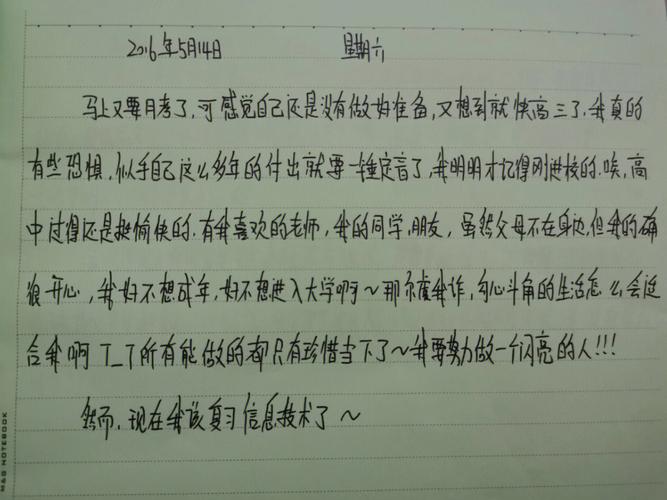 2016年5月14日 星期六
马上又要月考了,可感觉自己还是没有做好准备,又想到就快高三了.我真的
有些恐惧.似乎自己这么多年的付出就要一锤定音了,我明明才记得刚进校的.唉,高
中过得还是挺愉快的.有我喜欢的老师,我的同学,朋友,虽然父母不在身边,但我的确
很开心,我好不想成年,好不想进入大学啊~那尔虞我诈,勾心斗角的生活怎么会适
合我啊 T_T 所有能做的都只有珍惜当下了~我要努力做一个闪亮的人!!!
然而.现在我该复习信息技术了~
M&G NOTEBOOK